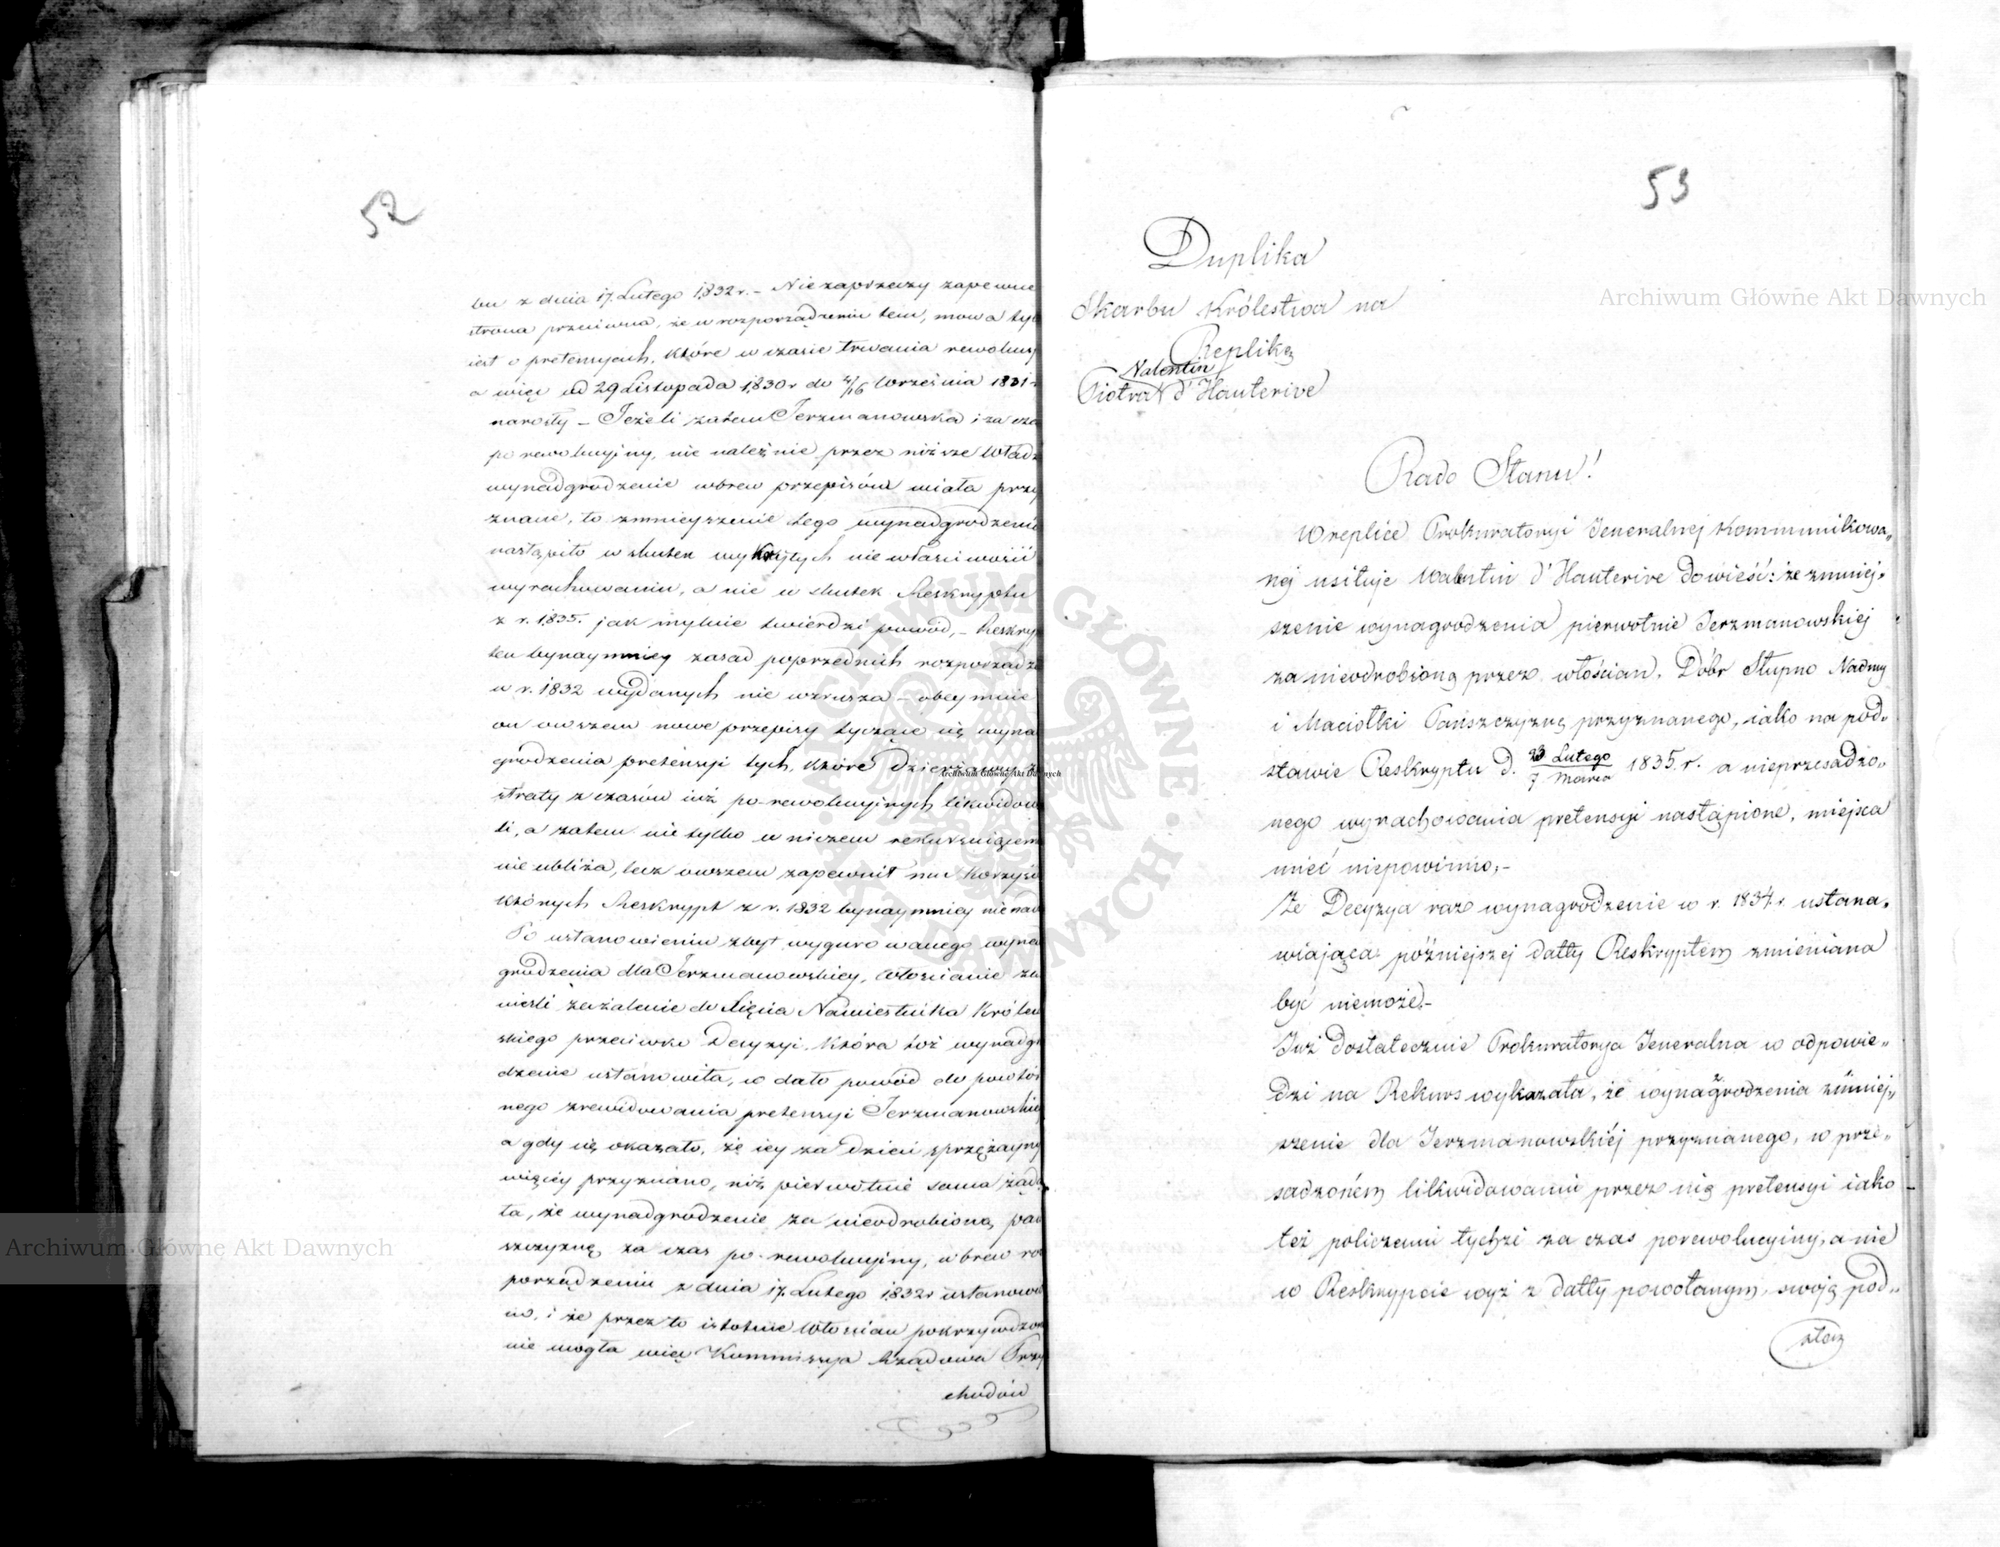 52
bu z dnia 17. Lutego 1832 r. – Niezaprzeczy zapewne
strona przeciwna, że w rozporządzeniu tem, mowa tyl
iest o pretensyach, które w czasie trwania rewolucy
a więc od 29 Listopada 1830 r do 4/16 Września 1831 r
narosły – Jeżeli zatem Jerzmanowska i za cza
porewolucyjny, nie należnie przez niższe Władz
wynadgrodzenie wbrew przepisów miała przy
znane, to zmnieyszenie tego wynadgrodzenia
nastąpiło w skutek wykrytych nie właściwości
wyrachowaniu, a nie w skutek Reskryptu
z r. 1835. jak mylnie twierdzi powód, – Reskry
ten bynaymniey zasad poprzednich rozporządze
w r. 1832 wydanych nie wzrusza – obeymuie
on owszem nowe przepisy tyczące się wyna
grodzenia pretensyi tych, które dzierżawcy za
straty z czasów iuż po-rewolucyjnych likwidowa
li, a zatem nie tylko w niczem rekursuiącem
nie ubliża, lecz owszem zapewnił mu korzyśc
których Reskrypt z r. 1832 bynaymniey nie nad
Po ustanowieniu zbyt wygurowanego wyna
grodzenia dla Jerzmanowskiey, Włościanie za
nieśli zażalenie do Xięcia Namiestnika Królew
skiego przeciwko Decyzyi, która toż wynadgr
dzenie ustanowiła, co dało powód do powtór
nego zrewidowania pretensyi Jerzmanowskie
a gdy się okazało, że iey za dzień sprzężayny
więcey przyznano, niż pierwotnie sama żąda
ła, że wynadgrodzenie za nieodrobioną pań
szczyznę za czas po-rewolucyjny, wbrew ro
porządzeniu z dnia 17. Lutego 1832 r ustanowi
no, i że przez to istotnie Włościan pokrzywdzon
nie mogła więc Kommissya Rządowa Przy
chodów
53
Duplika
Skarbu Królestwa na
Replikę
Valentin
Piotra d'Hauterive
Rado Stanu!
W replice Prokuratoryi Jeneralnej kommunikowa„
nej usiłuje Walentin d'Hauterive dowieść: że zmniej„
szenie wynagrodzenia pierwotnie Jerzmanowskiej
za nieodrobioną przez włościan, Dóbr Słupno Nadmy
i Maciołki Pańszczyznę przyznanego, iako na pod„
stawie Reskryptu d. 23 Lutego / 7 Marca 1835. r. a nieprzesadzo„
nego wyrachowania pretensyi nastąpione, miejsca
mieć niepowinno, –
Że Decyzya raz wynagrodzenie w r. 1834 r. ustana„
wiająca późniejszej datty Reskryptem zmieniana
być niemoże, –
Już dostatecznie Prokuratorya Jeneralna w odpowie„
dzi na Rekurs wykazała, że wynagrodzenia zmniej„
szenie dla Jerzmanowskiéj przyznanego, w prze„
sadzoném likwidowaniu przez nią pretensyi iako
też policzeniu tychże za czas porewolucyiny, a nie
w Reskrypcie wyż z datty powołanym, swoją pod„
stawę
Archiwum Główne Akt Dawnych
Archiwum Główne Akt Dawnych
Archiwum Główne Akt Dawnych
ARCHIWUM GŁÓWNE AKT DAWNYCH